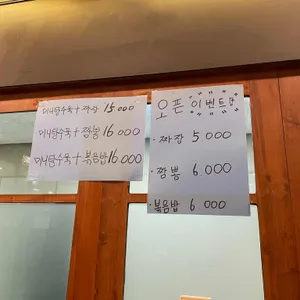 미니탕수육 + 짜장 15000
미니탕수육 + 짬뽕 16000
미니탕수육 + 볶음밥 16,000
오픈 이벤트
· 짜장 5000
· 짬뽕 6,000
· 볶음밥 6000